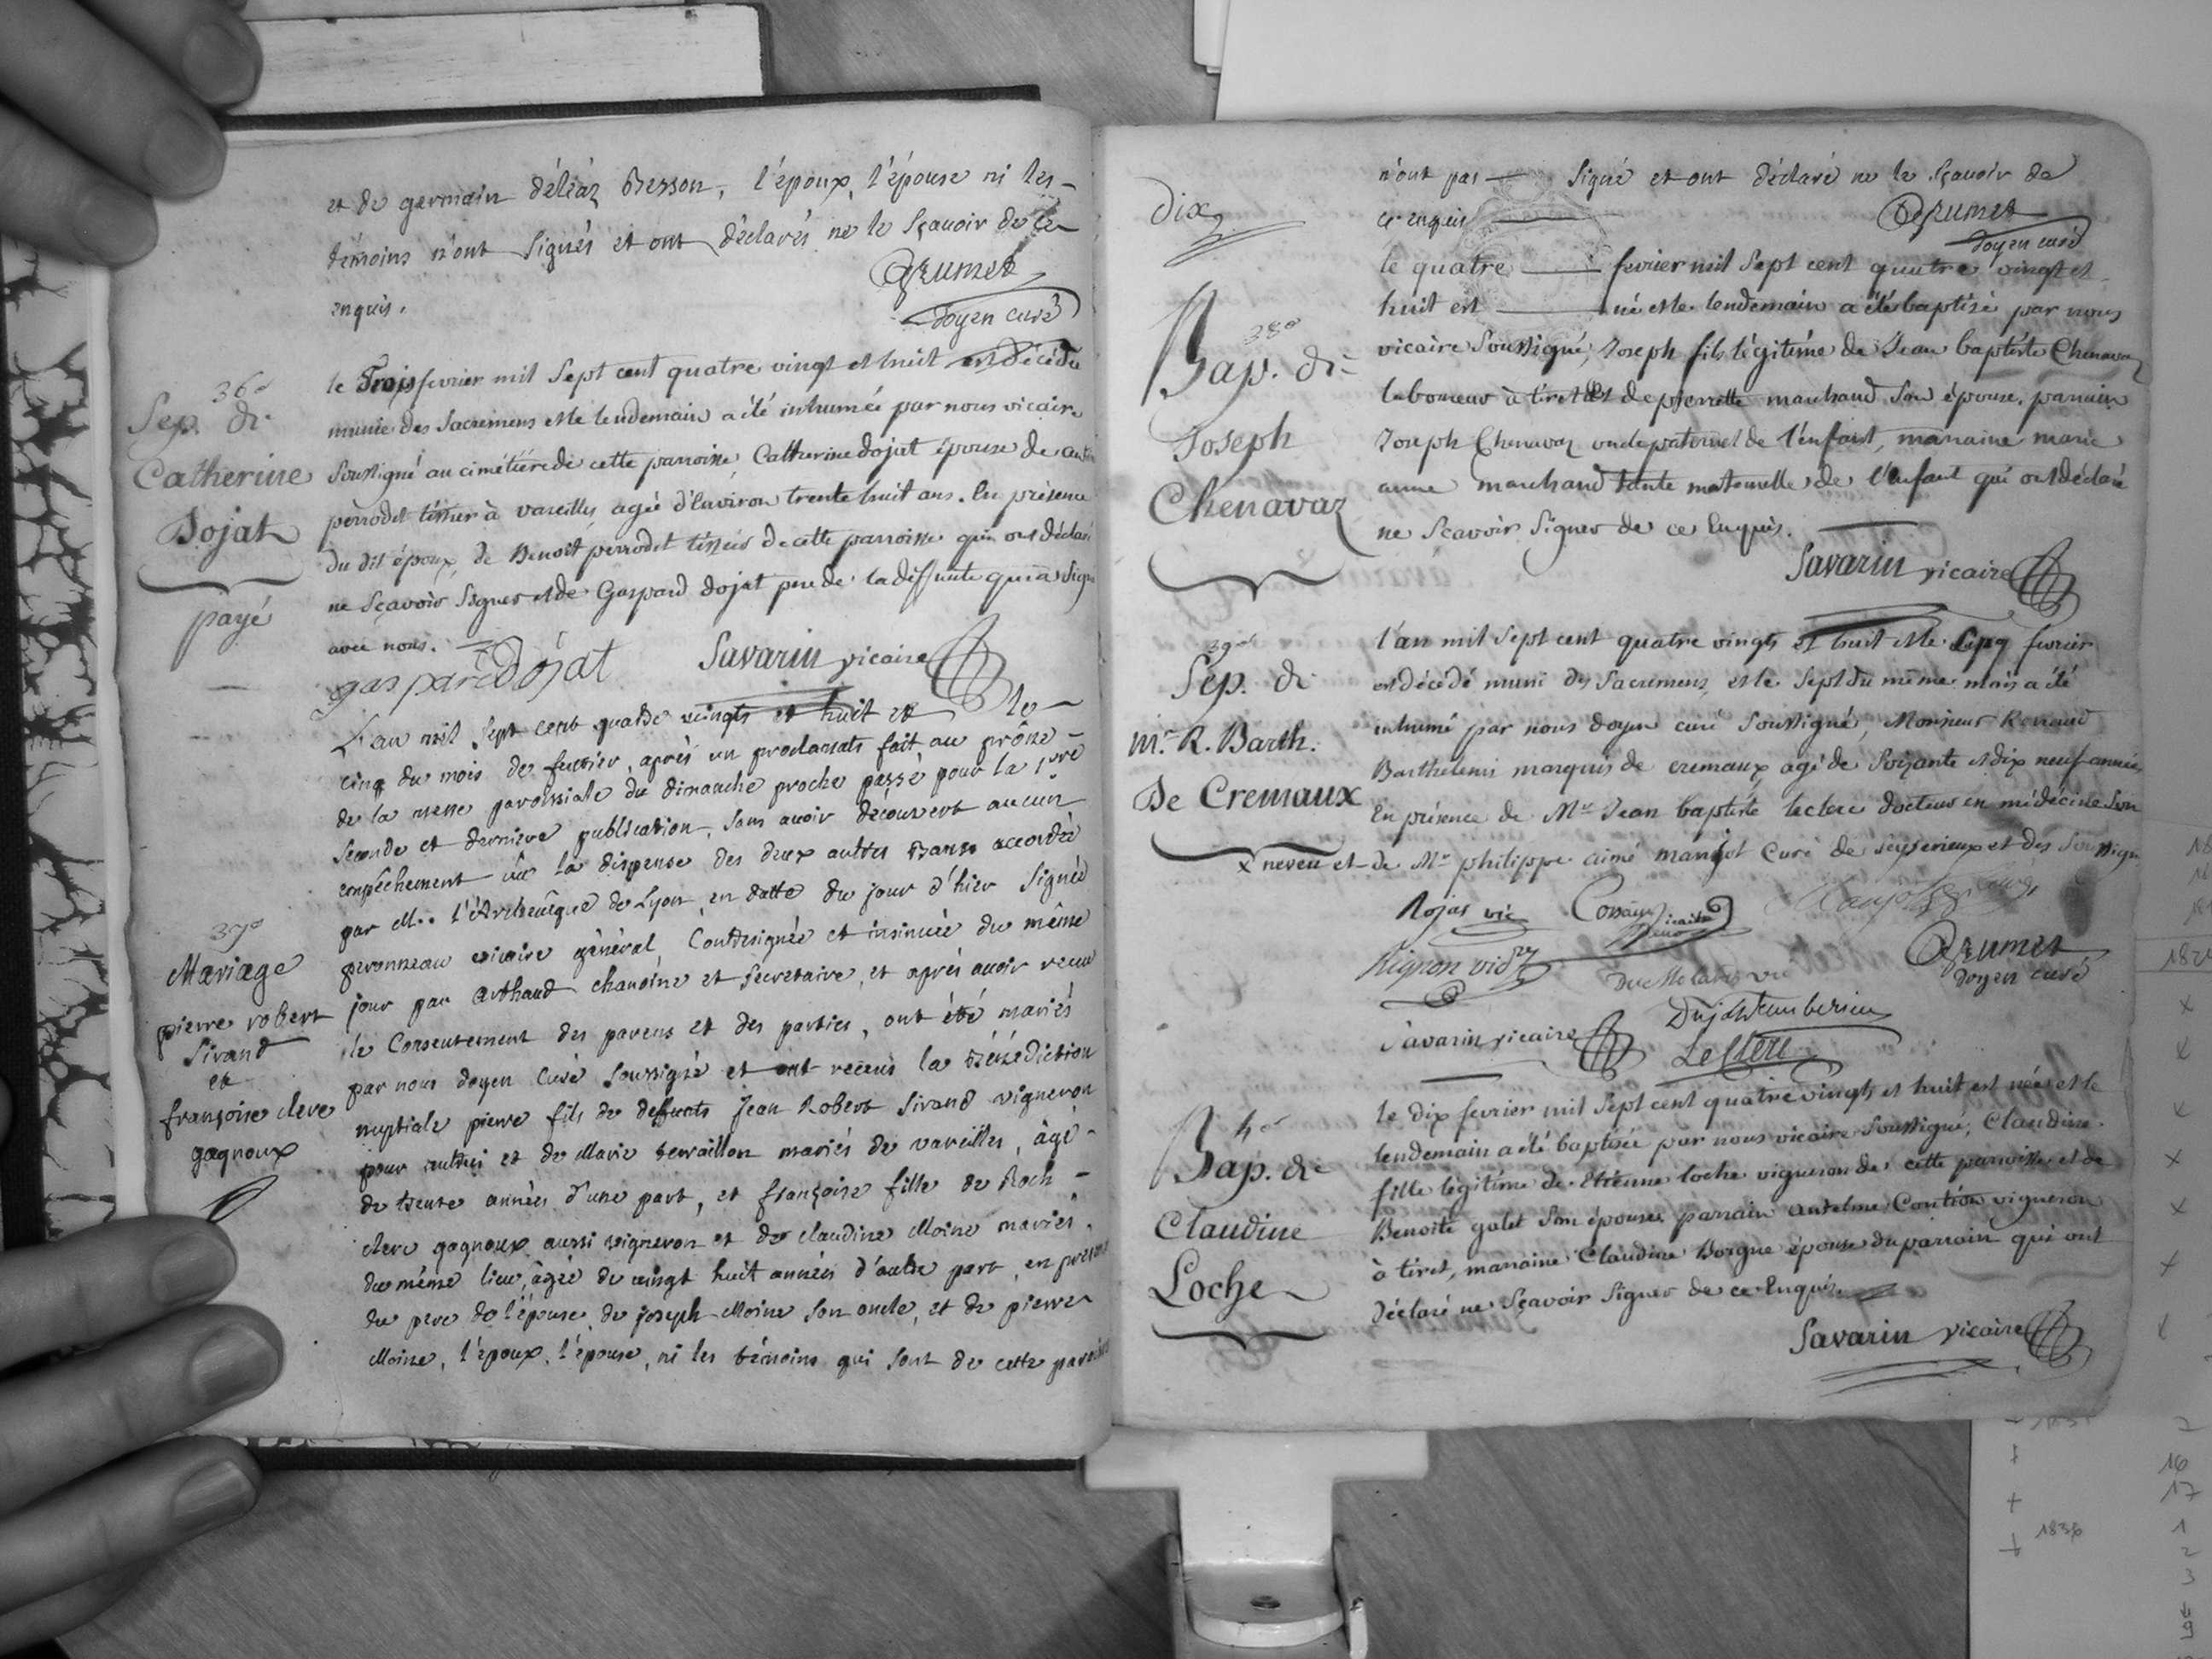 et de germain déléaz Besson, l'époux, l'épouse ni les
témoins n'ont signés et ont déclarés ne le sçavoir de ce
enquis.
Grumet
doyen curé
36e
Sep. de
Catherine
Dojat
payé
le Trois fevrier mil Sept cent quatre vingt et huit est décédée
munie des Sacremens et le lendemain a été inhumée par nous vicaire
soussigné au cimétière de cette parroisse Catherine dojat épouse de
perrodet tissier à vareilles agée d'Environ trente huit ans. En présence
du dit époux, de Benoît perrodet tissier de cette parroisse qui ont déclaré
ne Sçavoir Signer et de Gaspard dojat pere de la deffunte qui a signé
avec nous.
gaspard Dojat
Savarin vicaire
37e
Mariage
pierre robert
Sirand
et
françoise clere
gagnoux
L'an mil sept cent quatre vingts et huit et le
cinq du mois de fevrier, après un proclamats fait au prône
de la messe paroissiale du dimanche proche passé pour la 1ere
seconde et derniere publication, sans avoir découvert aucun
empêchement vû la dispense des deux autres bans accordée
par M.. l'Archevêque de Lyon, en datte du jour d'hier signée
peronneau vicaire général, Contresignée et insinuée du même
jour par Arthaud chanoine et secretaire, et après avoir receu
le Consentement des parens et des parties, ont été mariés
par nous doyen Curé soussigné et ont receus la Bénédiction
nuptiale pierre fils de deffunts Jean Robert Sirand vigneron
pour autrui et de Marie terraillon mariés de vareilles, âgé
de trente années d'une part, et françoise fille de Roch
clere gagnoux aussi vigneron et de claudine Moine mariés,
du même lieu, âgée de vingt huit années d'autre part, en
du pere de l'épouse, de joseph Moine son oncle, et de pierre
Moine, l'époux, l'épouse, ni les témoins qui sont de cette
dix
n'ont pas signé et ont déclaré ne le sçavoir de
ce enquis
Grumet
doyen curé
38e
Bap. de
Joseph
Chenavaz
le quatre fevrier mil Sept cent quatre vingt et
huit est né et le lendemain a été baptisé par nous
vicaire Soussigné, Joseph fils légitime de Jean baptiste Chenavaz
laboureur à tiret et de pierrette marchand son épouse, parrain
Joseph Chenavaz oncle paternel de l'enfant, marraine marie
anne marchand tante maternelle de l'enfant qui ont déclaré
ne Scavoir Signer de ce Enquis.
Savarin vicaire
39e
Sep. de
Mr. R. Barth.
De Cremaux
l'an mil Sept cent quatre vingts et huit et le cinq fevrier
est décédé muni des Sacremens et le Sept du même mois a été
inhumé par nous doyen curé soussigné, Monsieur Renaud
Barthelemi marquis de cremaux agé de Soixante et dix neuf années
En présence de Mr Jean baptiste leclerc docteur en médécine son
x neveu et de Mr philippe aimé manjot Curé de seyserieux et des
Rojat vic
vicaire
Manjot
Mignon vic
Grumet
doyen curé
Savarin vicaire
Leclerc
4e
Bap. de
Claudine
Loche
le dix fevrier mil Sept cent quatre vingts et huit est née et le
lendemain a été baptisée par nous vicaire Soussigné, Claudine
fille légitime de Etienne loche vigneron de cette parroisse et de
Benoite golet son épouse, parrain antelme Contion vigneron
à tiret, marraine Claudine Borgne épouse du parrain qui ont
déclaré ne Sçavoir Signer de ce Enquis.
Savarin vicaire
16
17
1836
1
2
3